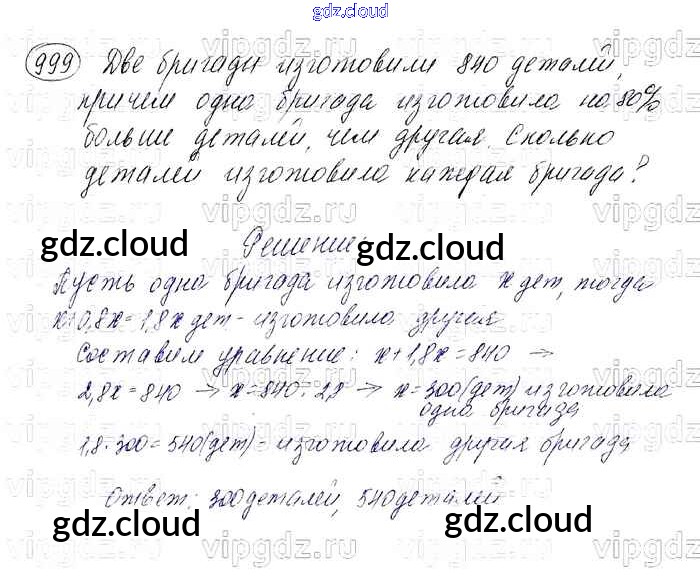 gdz.cloud
999 Две бригады изготовили 840 деталей,
причем одна бригада изготовила на 80%
больше деталей, чем другая. Сколько
деталей изготовила каждая бригада?
gdz.cloud Решение gdz.cloud
Пусть одна бригада изготовила x дет, тогда
x+0,8x=1,8x дет - изготовила другая
Составим уравнение: x+1,8x=840 →
2,8x=840 → x=840:2,8 → x=300(дет) изготовила
одна бригада
1,8·300=540(дет) - изготовила другая бригада
Ответ: 300деталей, 540деталей
gdz.cloud gdz.cloud
vipgdz.ru